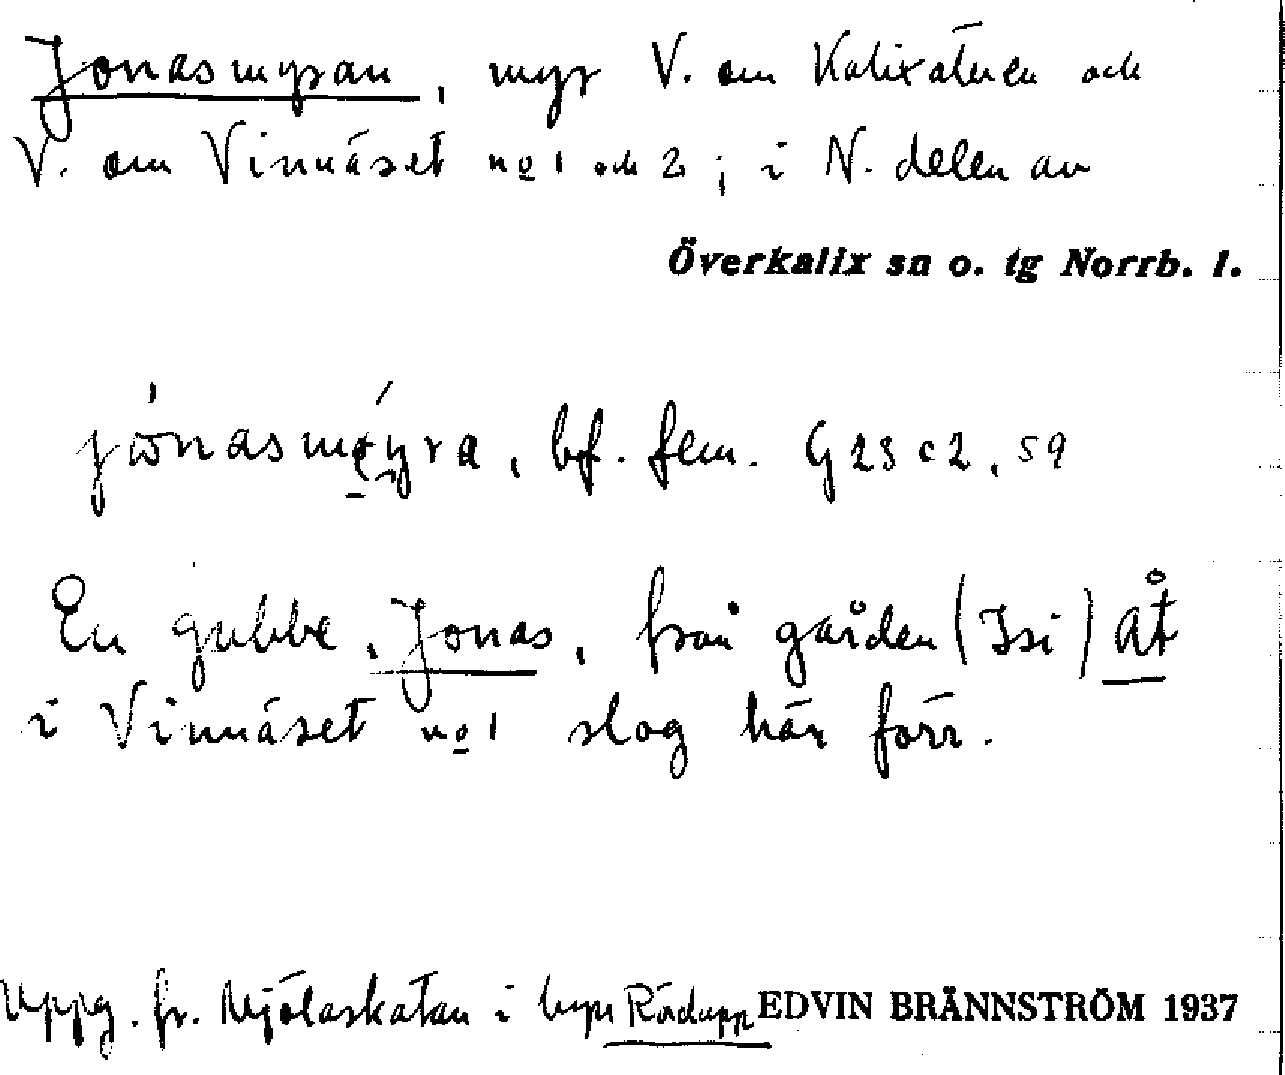 Jonasmyran, myr V. om Kalixälven och
V. om Vinnäset no 1 och 2; i N. delen av
Överkalix sn o. tg Norrb. l.
bf. fem. G 23 c 2, 59
En gubbe, Jonas, från gården (Isi) åt
i Vinnäset no 1 slog här förr.
Uppg. fr. Mjölaskatan i byn Rödupp EDVIN BRÄNNSTRÖM 1937